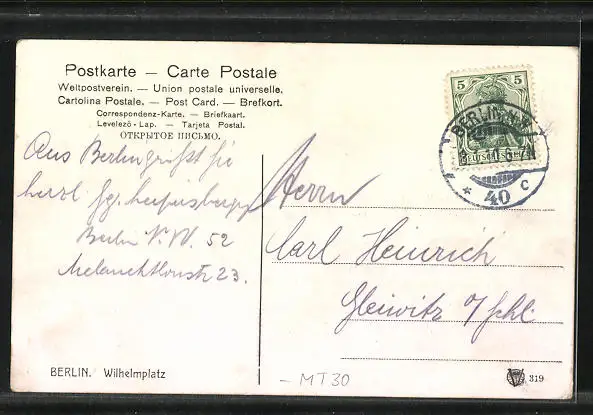 Postkarte — Carte Postale
Weltpostverein. — Union postale universelle.
Cartolina Postale. — Post Card. — Brefkort.
Correspondenz-Karte. — Briefkaart.
Levelező-Lap. — Tarjeta Postal.
ОТКРЫТОЕ ПИСЬМО.
Aus Berlin grüßt Sie
herzl.
Berlin N.W. 52
Melanchthonstr 23.
Herrn
Carl Heinrich
Gleiwitz O/Schl.
5 5
DEUTSCHES REICH
BERLIN N.W.
* 40 c
BERLIN. Wilhelmplatz
319
- MT30